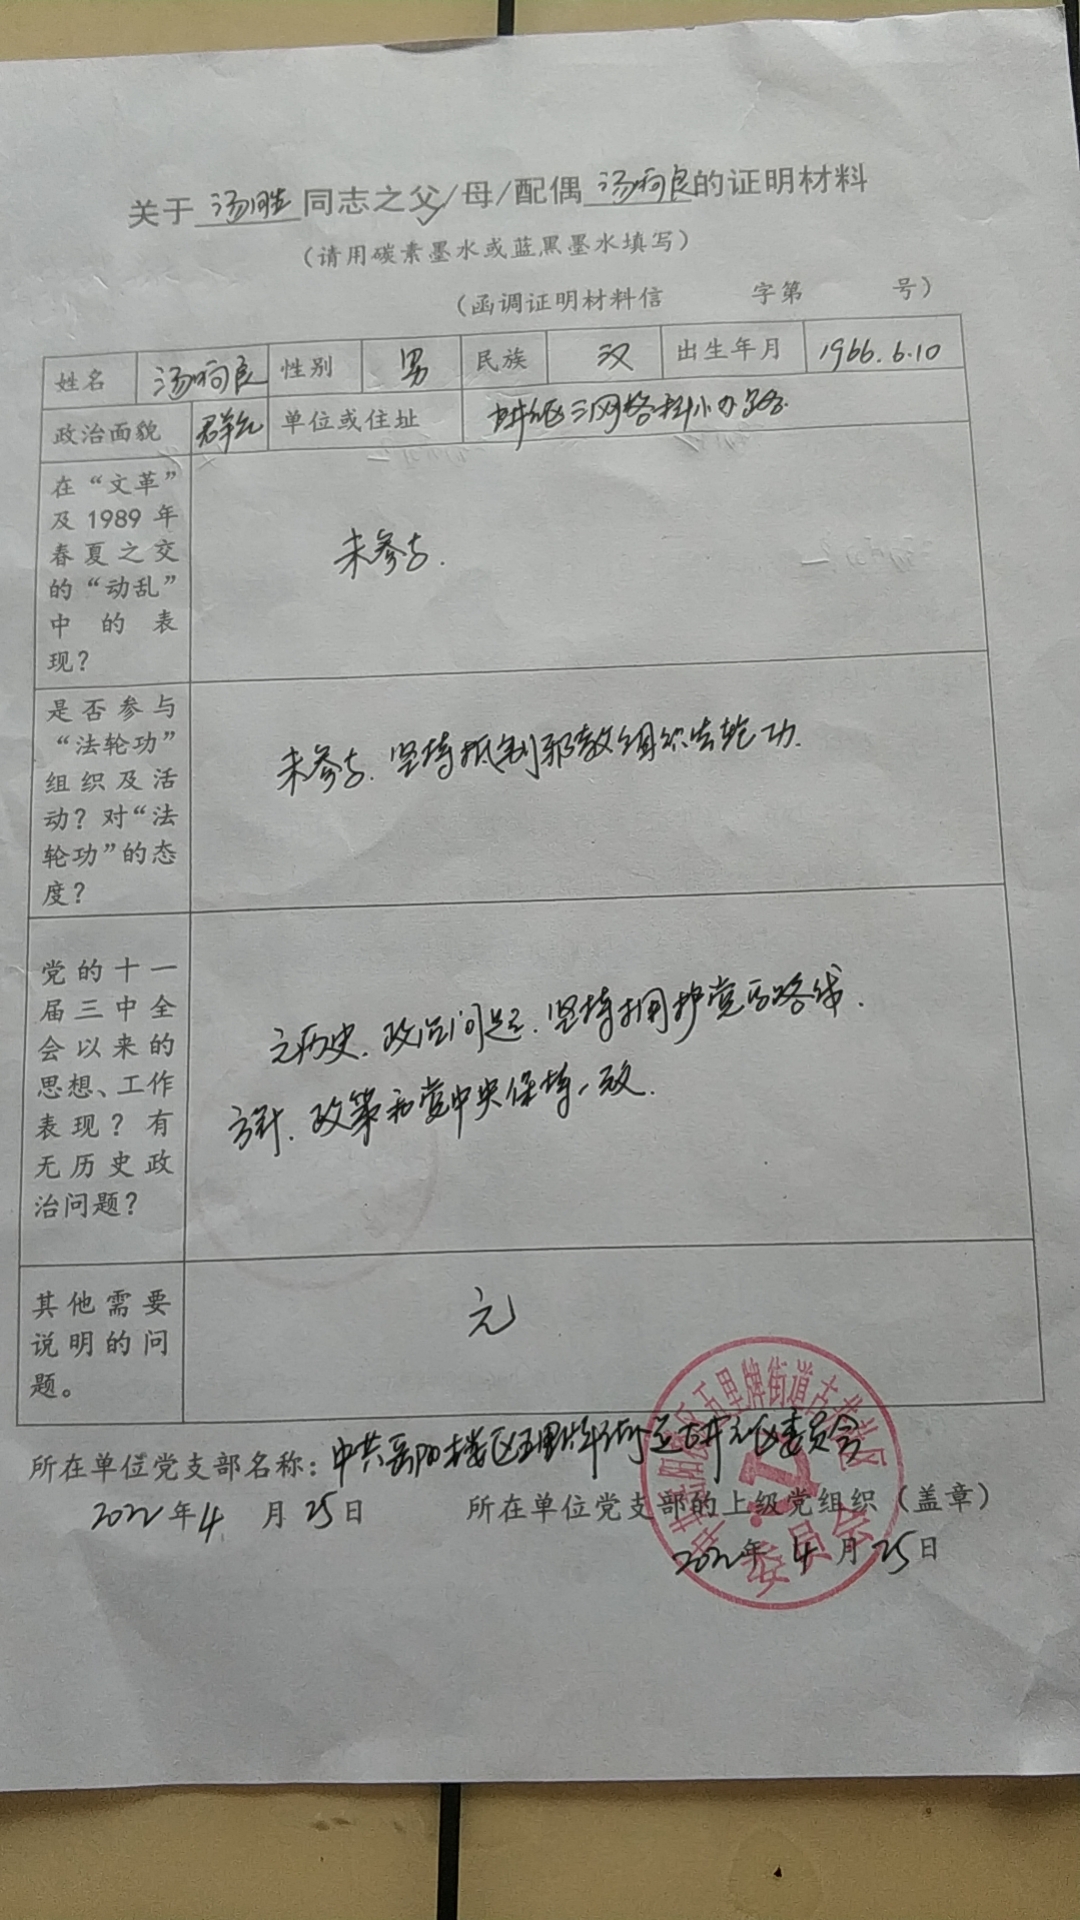 关于 汤胜 同志之父/母/配偶 汤柯良 的证明材料
（请用碳素墨水或蓝黑墨水填写）
（函调证明材料信 字第 号）
姓名 汤柯良 性别 男 民族 汉 出生年月 1966.6.10
政治面貌 群众 单位或住址 三网格
在“文革”
及1989年
春夏之交
的“动乱”
中的表
现？
未参与.
是否参与
“法轮功”
组织及活
动？对“法
轮功”的态
度？
未参与.坚持抵制邪教组织法轮功.
党的十一
届三中全
会以来的
思想、工作
表现？有
无历史政
治问题？
无历史.政治问题.坚持拥护党的路线.
方针.政策和党中央保持一致.
其他需要
说明的问
题。
无
所在单位党支部名称：中共岳阳楼区五里牌街道古井社区委员会
2022年4月25日 所在单位党支部的上级党组织（盖章）
2022年4月25日
五里牌街道古井社区
委员会